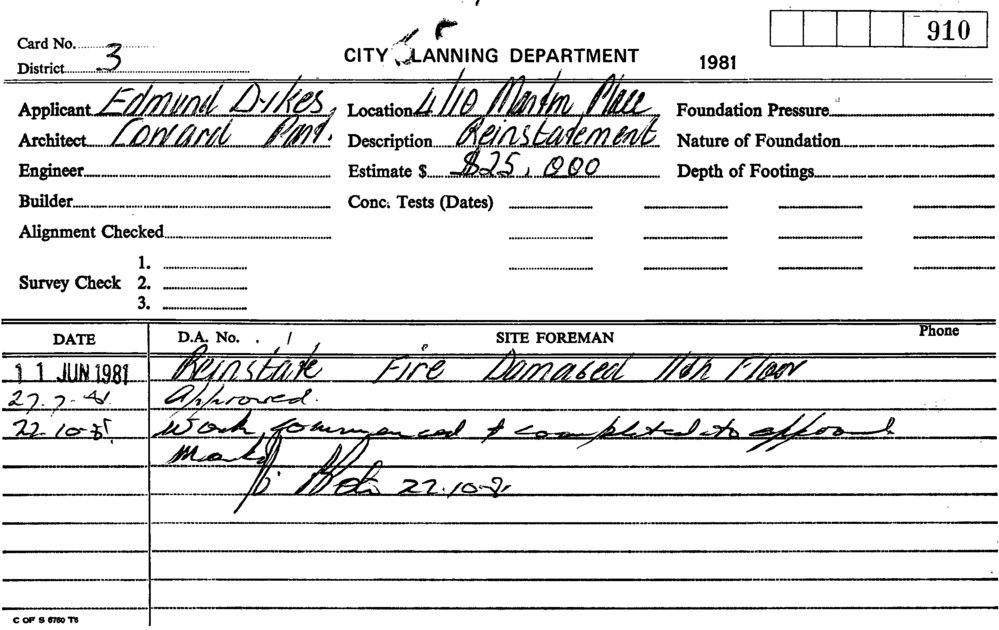 910
Card No.
CITY PLANNING DEPARTMENT
1981
District 3
Applicant Edmund Dikes Location 4/10 Martin Place Foundation Pressure
Architect Description Reinstatement Nature of Foundation
Engineer Estimate $ $25,000 Depth of Footings
Builder Conc. Tests (Dates)
Alignment Checked
1.
Survey Check 2.
3.
DATE D.A. No. / SITE FOREMAN Phone
11 JUN 1981 Reinstate Fire Damaged 11th Floor
27-7-81 Approved.
22-10-81 Work commenced & completed to approved
22-10-81
C OF S 6760 T6